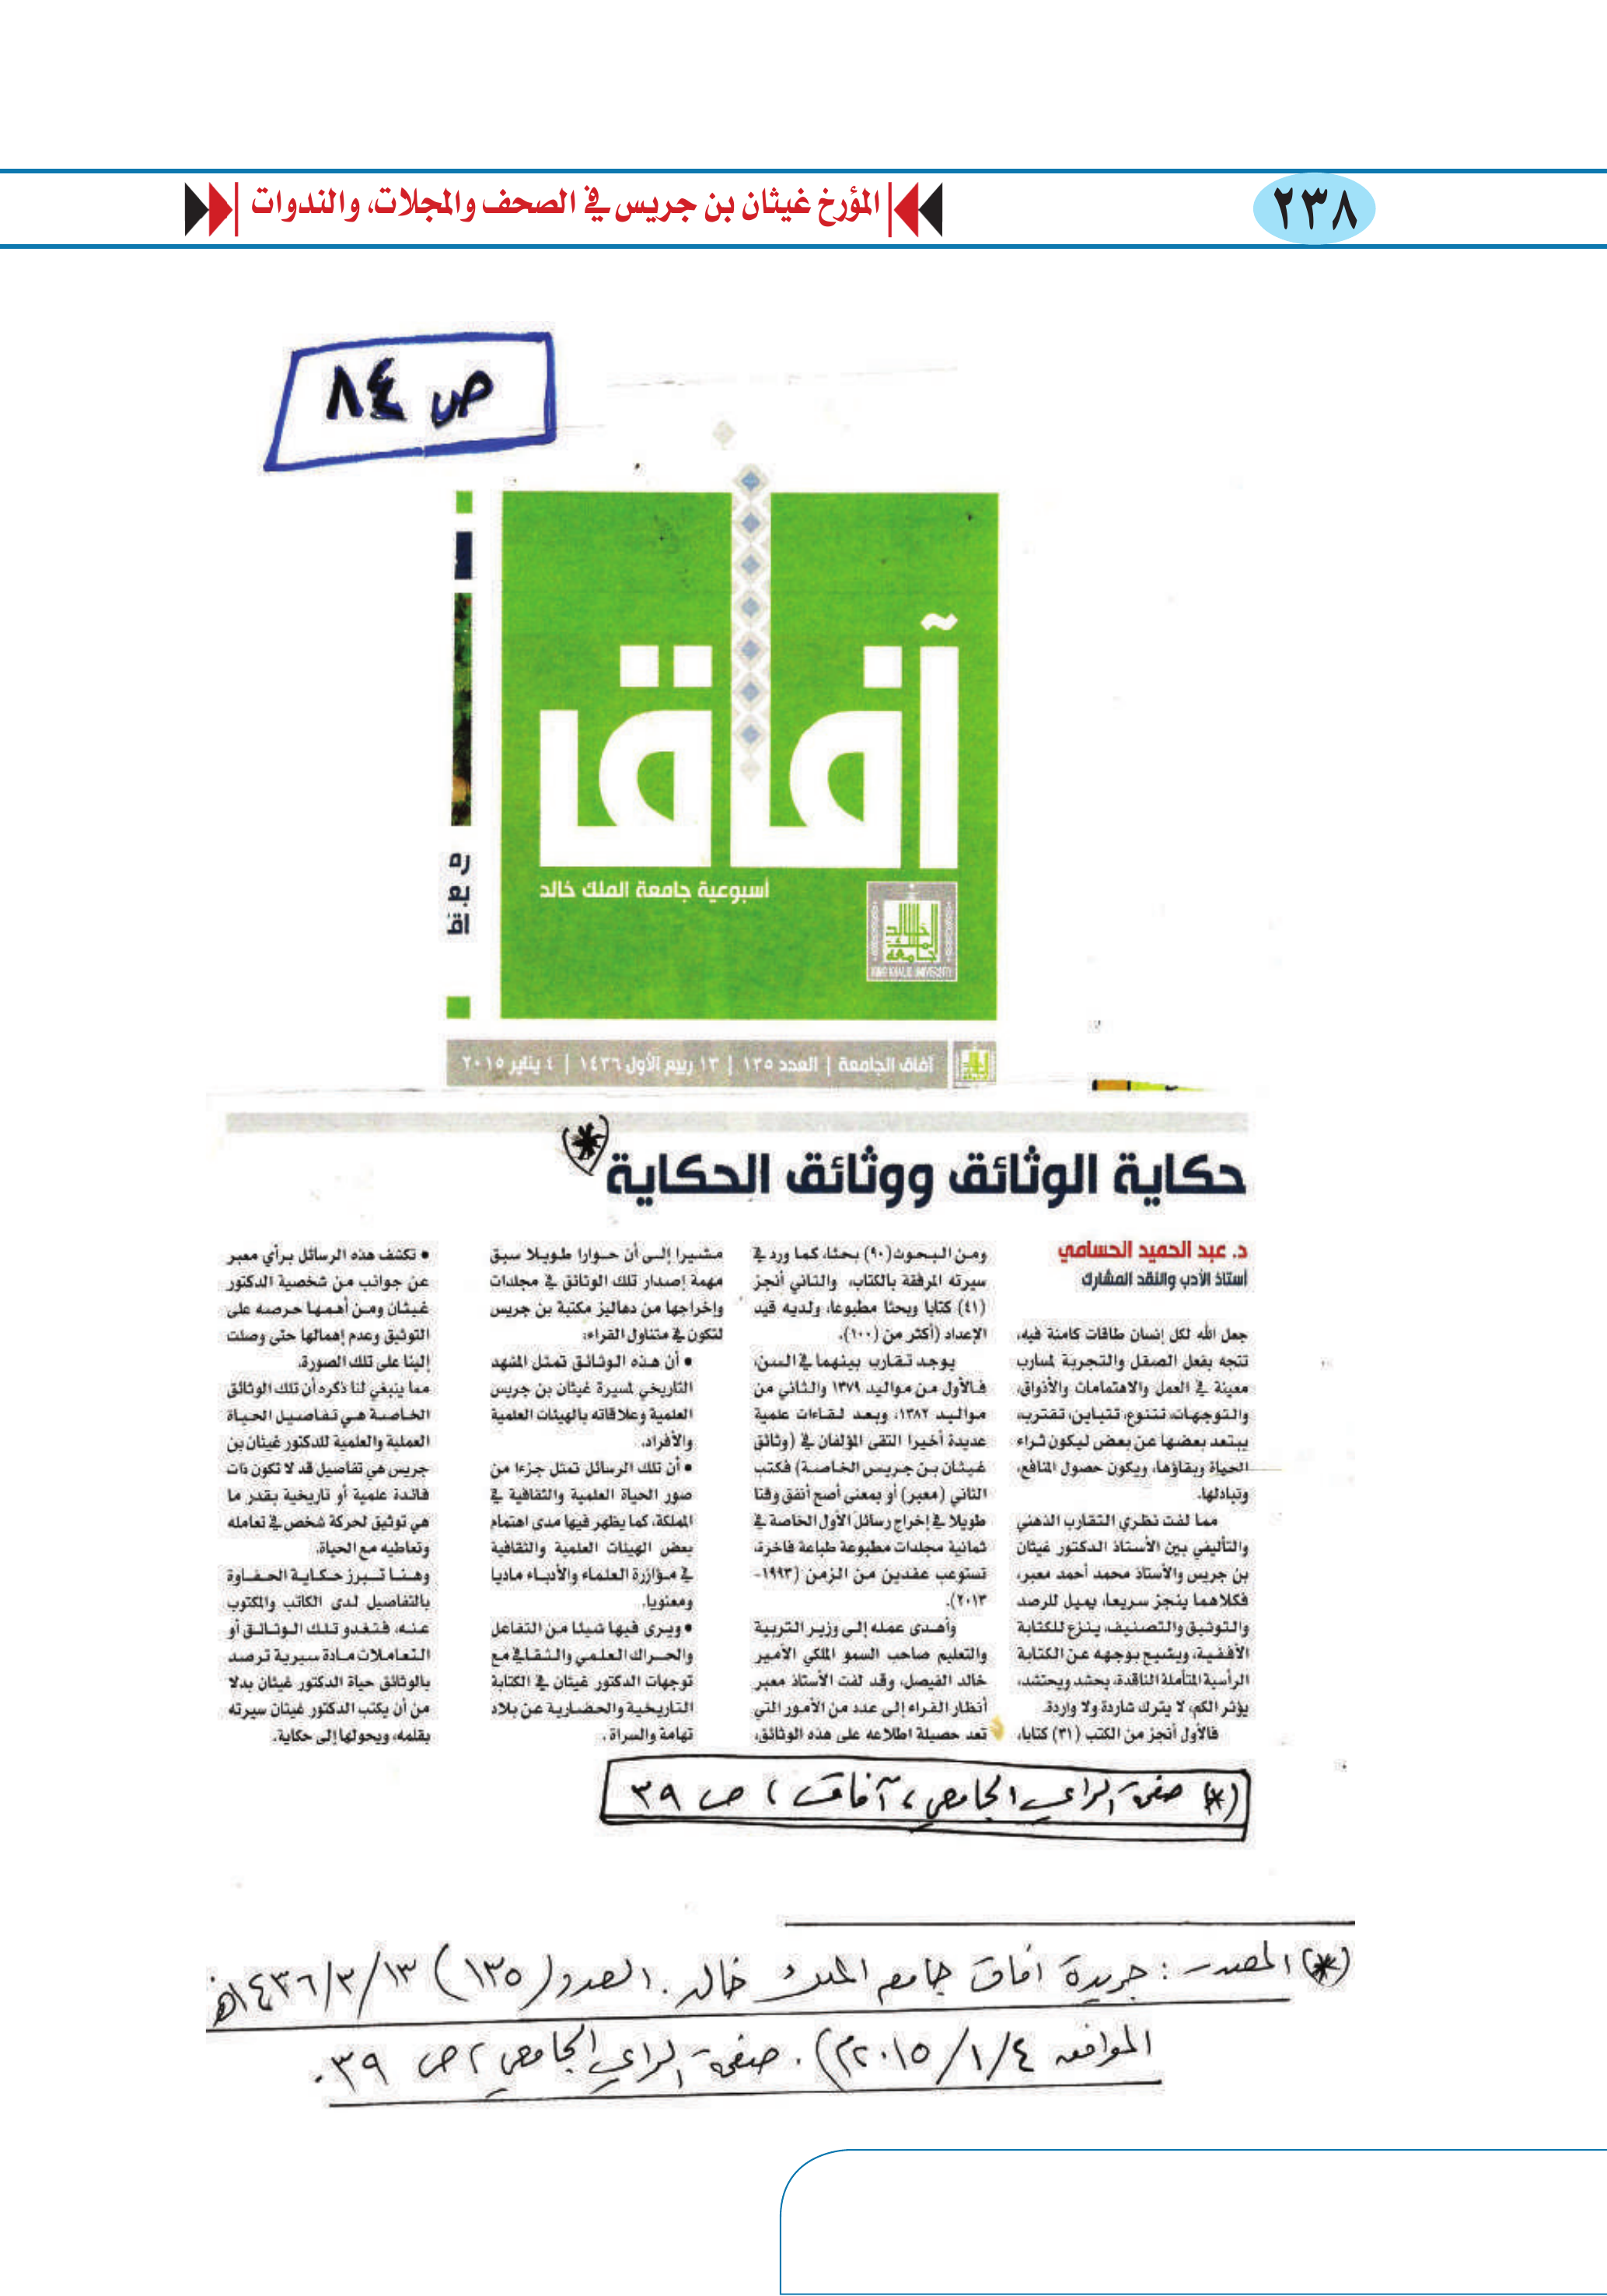 المؤرخ غيثان بن جريس في الصحف والمجلات، والندوات
٢٣٨
ص ٨٤
آفاق
أسبوعية جامعة الملك خالد
خالد
الملك
جامعة
KING KHALID UNIVERSITY
ره
بع
اق
آفاق الجامعة | العدد ١٣٥ | ١٣ ربيع الأول ١٤٣٦ | ٤ يناير ٢٠١٥
حكاية الوثائق ووثائق الحكاية
د. عبد الحميد الحسامي
أستاذ الأدب والنقد المشارك
جعل الله لكل إنسان طاقات كامنة فيه،
تتجه بفعل الصقل والتجربة لمسارب
معينة في العمل والاهتمامات والأذواق،
والتوجهات، تتنوع، تتباين، تقترب،
يبتعد بعضها عن بعض ليكون ثراء
الحياة وبقاؤها، ويكون حصول المنافع،
وتبادلها.
مما لفت نظري التقارب الذهني
والتأليفي بين الأستاذ الدكتور غيثان
بن جريس والأستاذ محمد أحمد معبر،
فكلاهما ينجز سريعا، يميل للرصد
والتوثيق والتصنيف، ينزع للكتابة
الأفقية، ويشيح بوجهه عن الكتابة
الرأسية المتأملة الناقدة، يحشد ويحتشد،
يؤثر الكم، لا يترك شاردة ولا واردة.
فالأول أنجز من الكتب (٣١) كتابا،
ومن البحوث (٩٠) بحثا، كما ورد في
سيرته المرفقة بالكتاب، والثاني أنجز
(٤١) كتابا وبحثا مطبوعا، ولديه قيد
الإعداد (أكثر من (١٠٠).
يوجد تقارب بينهما في السن،
فالأول من مواليد ١٣٧٩ والثاني من
مواليد ١٣٨٢، وبعد لقاءات علمية
عديدة أخيرا التقى المؤلفان في (وثائق
غيثان بن جريس الخاصة) فكتب
الثاني (معبر) أو بمعنى أصح أنفق وقتا
طويلا في إخراج رسائل الأول الخاصة في
ثمانية مجلدات مطبوعة طباعة فاخرة،
تستوعب عقدين من الزمن (١٩٩٣-
٢٠١٣).
وأهدى عمله إلى وزير التربية
والتعليم صاحب السمو الملكي الأمير
خالد الفيصل، وقد لفت الأستاذ معبر
أنظار القراء إلى عدد من الأمور التي
تعد حصيلة اطلاعه على هذه الوثائق،
مشيرا إلى أن حوارا طويلا سبق
مهمة إصدار تلك الوثائق في مجلدات
وإخراجها من دهاليز مكتبة بن جريس
لتكون في متناول القراء:
• أن هذه الوثائق تمثل المشهد
التاريخي لمسيرة غيثان بن جريس
العلمية وعلاقاته بالهيئات العلمية
والأفراد.
• أن تلك الرسائل تمثل جزءا من
صور الحياة العلمية والثقافية في
المملكة، كما يظهر فيها مدى اهتمام
بعض الهيئات العلمية والثقافية
في مؤازرة العلماء والأدباء ماديا
ومعنويا.
• ويرى فيها شيئا من التفاعل
والحراك العلمي والثقافي مع
توجهات الدكتور غيثان في الكتابة
التاريخية والحضارية عن بلاد
تهامة والسراة.
• تكشف هذه الرسائل برأي معبر
عن جوانب من شخصية الدكتور
غيثان ومن أهمها حرصه على
التوثيق وعدم إهمالها حتى وصلت
إلينا على تلك الصورة.
مما ينبغي لنا ذكره أن تلك الوثائق
الخاصة هي تفاصيل الحياة
العملية والعلمية للدكتور غيثان بن
جريس هي تفاصيل قد لا تكون ذات
فائدة علمية أو تاريخية بقدر ما
هي توثيق لحركة شخص في تعامله
وتعاطيه مع الحياة.
وهنا تبرز حكاية الحفاوة
بالتفاصيل لدى الكاتب والمكتوب
عنه، فتغدو تلك الوثائق أو
التعاملات مادة سيرية ترصد
بالوثائق حياة الدكتور غيثان بدلا
من أن يكتب الدكتور غيثان سيرته
بقلمه، ويحولها إلى حكاية.
(*) صفحة الرأي الجامعي، آفاق، ص ٣٩
(*) المصدر: جريدة آفاق جامعة الملك خالد. العدد (١٣٥) ١٣/٣/١٤٣٦هـ
الموافق ٤/١/٢٠١٥م). صفحة الرأي الجامعي، ص ٣٩.